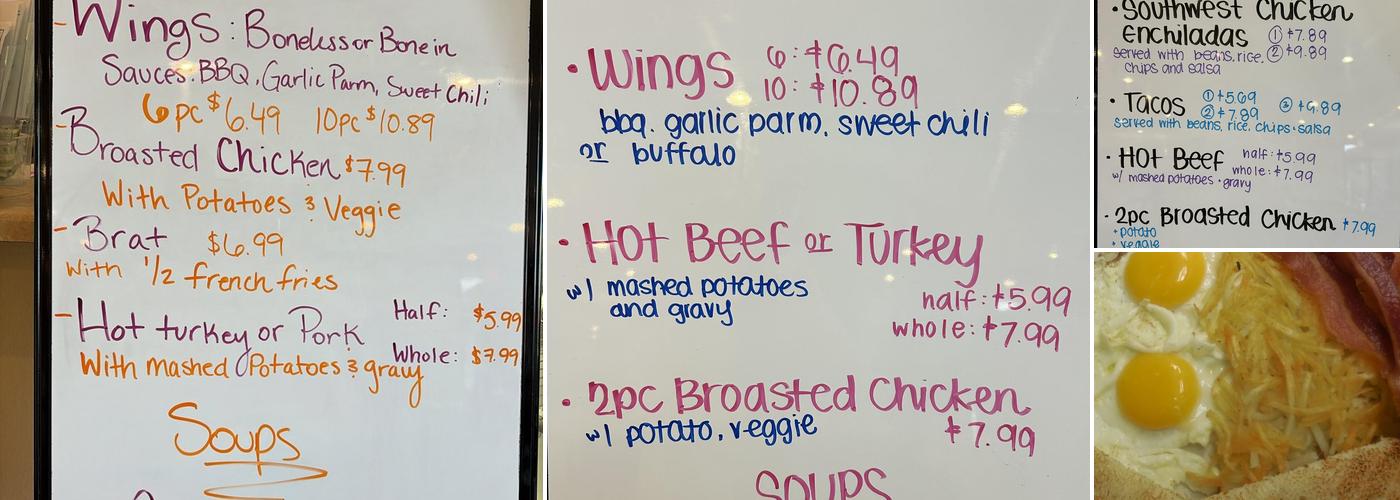 - Wings: Boneless or Bone in
Sauces: BBQ, Garlic Parm, Sweet Chili
6pc $6.49 10pc $10.89
- Broasted Chicken $7.99
With Potatoes & Veggie
- Brat $6.99
with 1/2 french fries
- Hot turkey or Pork Half: $5.99
With mashed Potatoes & gravy Whole: $7.99
Soups
• Wings 6: $6.49
10: $10.89
bbq, garlic parm, sweet chili
or buffalo
• Hot Beef or Turkey
w/ mashed potatoes
and gravy
half: $5.99
whole: $7.99
• 2pc Broasted Chicken
w/ potato, veggie $7.99
SOUPS
• Southwest Chicken
Enchiladas ① $7.89
served with beans, rice, ② $9.89
chips and salsa
• Tacos ① $5.69 ③ $9.89
② $7.89
served with beans, rice, chips + salsa
• HOt Beef half: $5.99
whole: $7.99
w/ mashed potatoes + gravy
• 2pc Broasted Chicken $7.99
+ potato
+ veggie